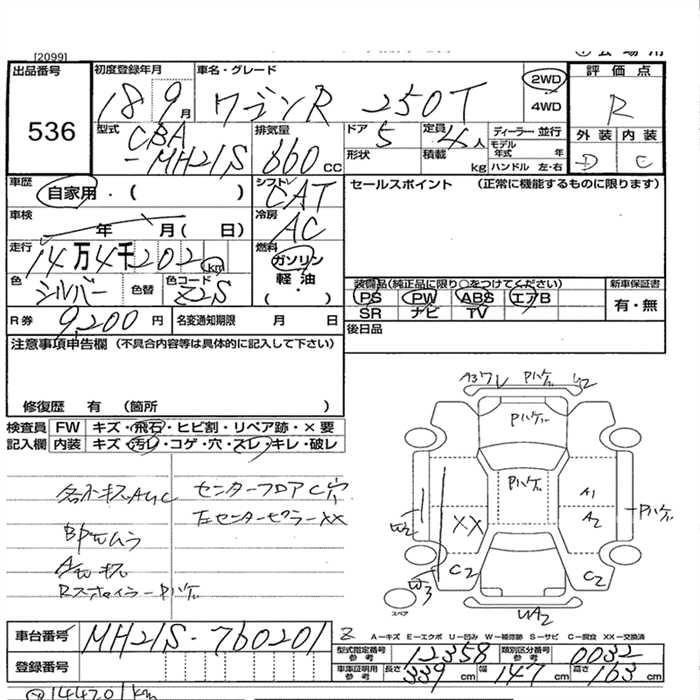 [2099]
出品番号
536
初度登録年月
18 9月
車名・グレード
ワゴンR 250T
2WD
4WD
評価点
R
外装 内装
D C
型式
CBA
-MH21S
排気量
660 cc
ドア 5
定員 4人
ディーラー・並行
モデル年式 年
形状
積載 kg
ハンドル 左・右
車歴
自家用・( )
シフト
CAT
セールスポイント (正常に機能するものに限ります)
車検
年 月( 日)
冷房
AC
走行
14万4千202km
燃料
ガソリン
軽油・
( )
色
シルバー
色替
色コード
Z2S
装備品(純正品に限り○をつけてください)
PS PW ABS エアB
SR ナビ TV
新車保証書
有・無
R券 9,200円
名変通知期限 月 日
後日品
注意事項申告欄 (不具合内容等は具体的に記入して下さい)
修復歴 有 (箇所 )
検査員 FW キズ・飛石・ヒビ割・リペア跡・×要
記入欄 内装 キズ・汚レ・コゲ・穴・スレ・キレ・破レ
センターフロアC穴
左センターピラーXX
Rスポイラー Pハゲ
A3 Pハゲ
Pハゲ
Pハゲ
A1
A2
Pハゲ
W2
XX
C2
C2
W3
スペア
WA2
車台番号 MH21S-760201
A−キズ E−エクボ U−凹み W−補修跡 S−サビ C−腐食 XX−交換済
型式指定番号 参考 12358
類別区分番号 参考 0032
登録番号
車庫証明用 参考 長さ 339cm 幅 147cm 高さ 163cm